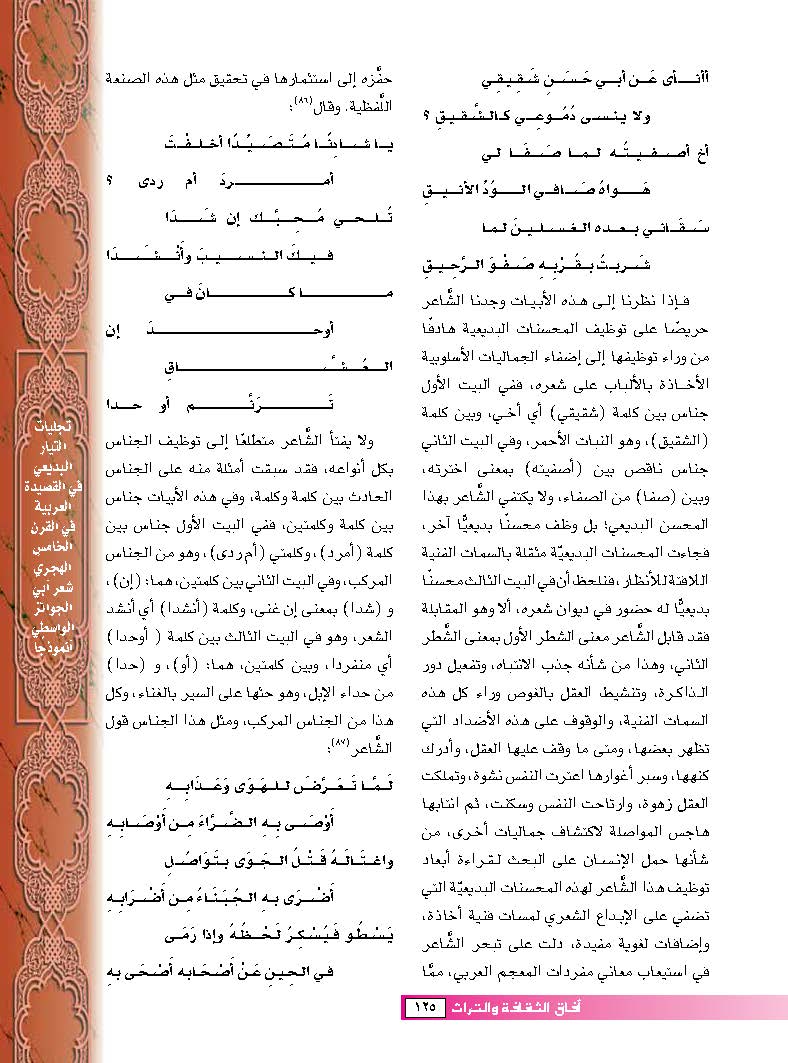 أأنـــأى عَـن أبــي حَـسَـنٍ شَـقِـيـقِـي
ولا يـنـسـى دُمُـوعِــي كـالـشَّـقـيـقِ ؟
أخ أصـفـيـتُـه لـمـا صَـفَـا لـي
هَـــواهُ صَـافـي الــوُدِّ الأنـيـقِ
سَـقَـانـي بـعـده الـغـسـلـيـنَ لـمـا
شَـربـتُ بـقُـرْبِـهِ صَـفْـوَ الـرَّحِـيـقِ
فـإذا نظرنا إلـى هـذه الأبيـات وجدنا الشَّاعر
حريصًا على توظيف المحسنات البديعية هادفًا
من وراء توظيفها إلى إضفاء الجماليات الأسلوبية
الأخـاذة بالألباب على شعره، ففي البيت الأول
جناس بين كلمة (شقيقي) أي أخـي، وبين كلمة
(الشقيق)، وهو النبات الأحمر، وفي البيت الثاني
جناس ناقص بين (أصفيته) بمعنى اخترته،
وبين (صفا) من الصفاء، ولا يكتفي الشَّاعر بهذا
المحسن البديعي؛ بل وظف محسنًا بديعيًّا آخر،
فجاءت المحسنات البديعيّة مثقلة بالسمات الفنية
اللافتة للأنظار، فنلحظ أن في البيت الثالث محسنًا
بديعيًّا له حضور في ديوان شعره، ألا وهو المقابلة
فقد قابل الشَّاعر معنى الشطر الأول بمعنى الشَّطر
الثاني، وهذا من شأنه جذب الانتباه، وتفعيل دور
الـذاكـرة، وتنشيط العقل بالغوص وراء كل هذه
السمات الفنية، والوقوف على هذه الأضداد التي
تظهر بعضها، ومتى ما وقف عليها العقل، وأدرك
كنهها، وسبر أغوارها اعترت النفس نشوة، وتملكت
العقل زهوة، وارتاحت النفس وسكنت، ثم انتابها
هاجس المواصلة لاكتشاف جماليات أخـرى، من
شأنها حمل الإنسان على البحث لقراءة أبعاد
توظيف هذا الشَّاعر لهذه المحسنات البديعيّة التي
تضفي على الإبداع الشعري لمسات فنية أخاذة،
وإضافات لغوية مفيدة، دلت على تبحر الشَّاعر
في استيعاب معاني مفردات المعجم العربي، ممَّا
حفَّزه إلى استثمارها في تحقيق مثل هذه الصنعة
اللَّفظية. وقال(٨٦):
يـا شـادِنًـا مُـتَـصَـيِّـدًا أخـلـفْـتَ
أمــــردَ أم ردى ؟
تُـلـحـي مُـحِـبَّـك إن شَـــدَا
فـيـكَ الـنـسـيـبَ وأَنْـشَـدَا
مـــا كـــانَ فـي
أوحـــدَ إن
الـعُـشَّـــاقِ
تَـــرَنَّـــم أو حــدا
ولا يفتأ الشَّاعر متطلعًا إلـى توظيف الجناس
بكل أنواعه، فقد سبقت أمثلة منه على الجناس
الحادث بين كلمة وكلمة، وفي هذه الأبيات جناس
بين كلمة وكلمتين، ففي البيت الأول جناس بين
كلمة (أمرد)، وكلمتي (أم ردى)، وهو من الجناس
المركب، وفي البيت الثاني بين كلمتين، هما: (إن)،
و (شدا) بمعنى إن غنى، وكلمة (أنشدا) أي أنشد
الشعر، وهو في البيت الثالث بين كلمة ( أوحدا)
أي منفردا، وبين كلمتين، هما: (أو)، و (حدا)
من حداء الإبل، وهو حثها على السير بالغناء، وكل
هذا من الجناس المركب، ومثل هذا الجناس قول
الشَّاعر(٨٧):
لَـمَّـا تَـعَـرَّضَ لـلـهَـوَى وَعَـذَابِـهِ
أَوْصَـى بِـهِ الـضَّـرَّاءَ مِـن أَوْصَـابِـهِ
واغـتَـالَـهُ قَـتْـلُ الـجَـوَى بِـتَـوَاصُـلٍ
أَضْـرَى بِـهِ الـجُـبَـنَـاءُ مِـن أَضْـرَابِـهِ
يَـسْـطُـو فَـيُـسْـكِـرُ لَـحْـظُـهُ وإذا رَمَـى
فـي الـحِـيـنِ عَـنْ أَصْـحَـابِـه أَضْـحَـى بِـهِ
تجليات
التيار
البديعي
في القصيدة
العربية
في القرن
الخامس
الهجري
شعر أبي
الجوائز
الواسطي
أنموذجا
آفاق الثقافة والتراث ١٢٥